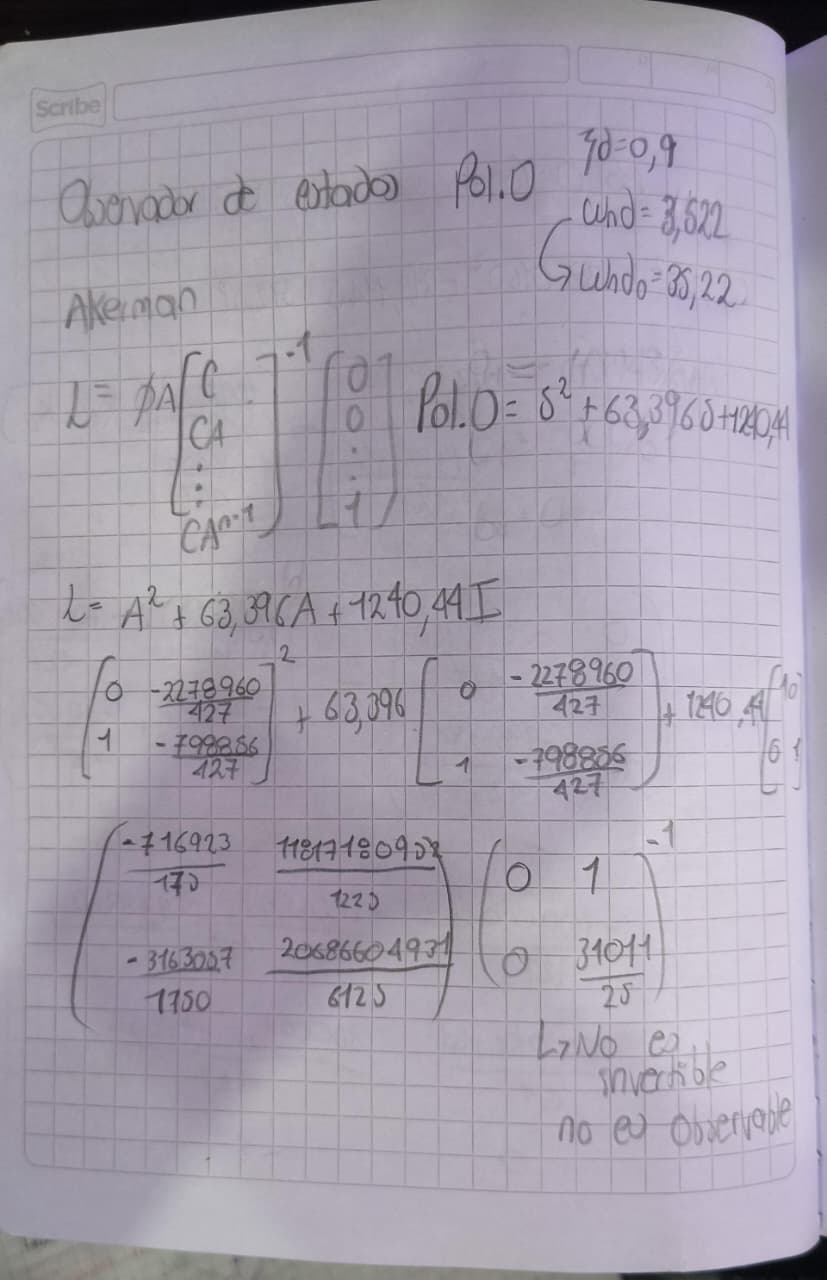 Scribe
Observador de estados Pol.O ζd=0,9
ωnd=3,522
↳ωndo=35,22
Akerman
L= φA [C CA ⋮ CAⁿ⁻¹]⁻¹ [0 0 ⋮ 1] Pol.O= s² + 63,396s+1240,44
L= A² + 63,396A + 1240,44 I
[0 -2278960/427 ; 1 -798856/427]² + 63,396 [0 -2278960/427 ; 1 -798856/427] + 1240,44 [1 0 ; 0 1]
(-716923/175 ; -3163057/1750 20686604931/6125) (0 1 ; 0 31011/25)⁻¹
↳No es
invertible
no es observable